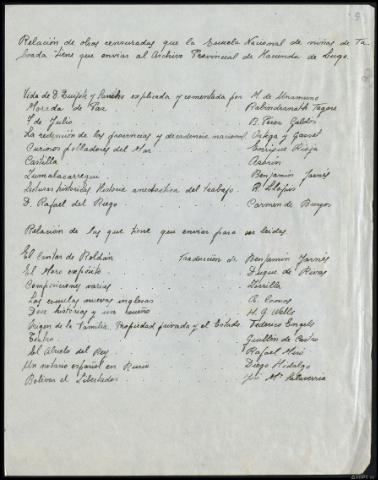 Relación de obras censuradas que la Escuela Nacional de niñas de Ta-
boada tiene que enviar al Archivo Provincial de Hacienda de Lugo.
Vida de D. Quijote y Sancho explicada y comentada por M. de Unamuno
Morada de Paz Rabindernath Tagore
7 de Julio B. Pérez Galdós
La redención de las provincias y decadencia nacional Ortega y Gasset
Curiosos pobladores del Mar Enrique Rioja
Castilla Azorín
Zumalacárregui Benjamín Jarnés
Lecturas históricas Historia anecdótica del trabajo R. Llopis
D. Rafael del Riego Carmen de Burgos
Relación de los que tiene que enviar para ser leídos
El Cantar de Roldán Traducción de Benjamín Jarnés
El Moro expósito Duque de Rivas
Composiciones varias Zorrilla
Las escuelas nuevas inglesas
Doce historias y un sueño H. G. Wells
Origen de la Familia, Propiedad privada y el Estado Federico Engels
Teatro Guillén de Castro
El Abuelo del Rey Rafael Miró
Un notario español en Rusia Diego Hidalgo
Bolívar el Libertador José Mª